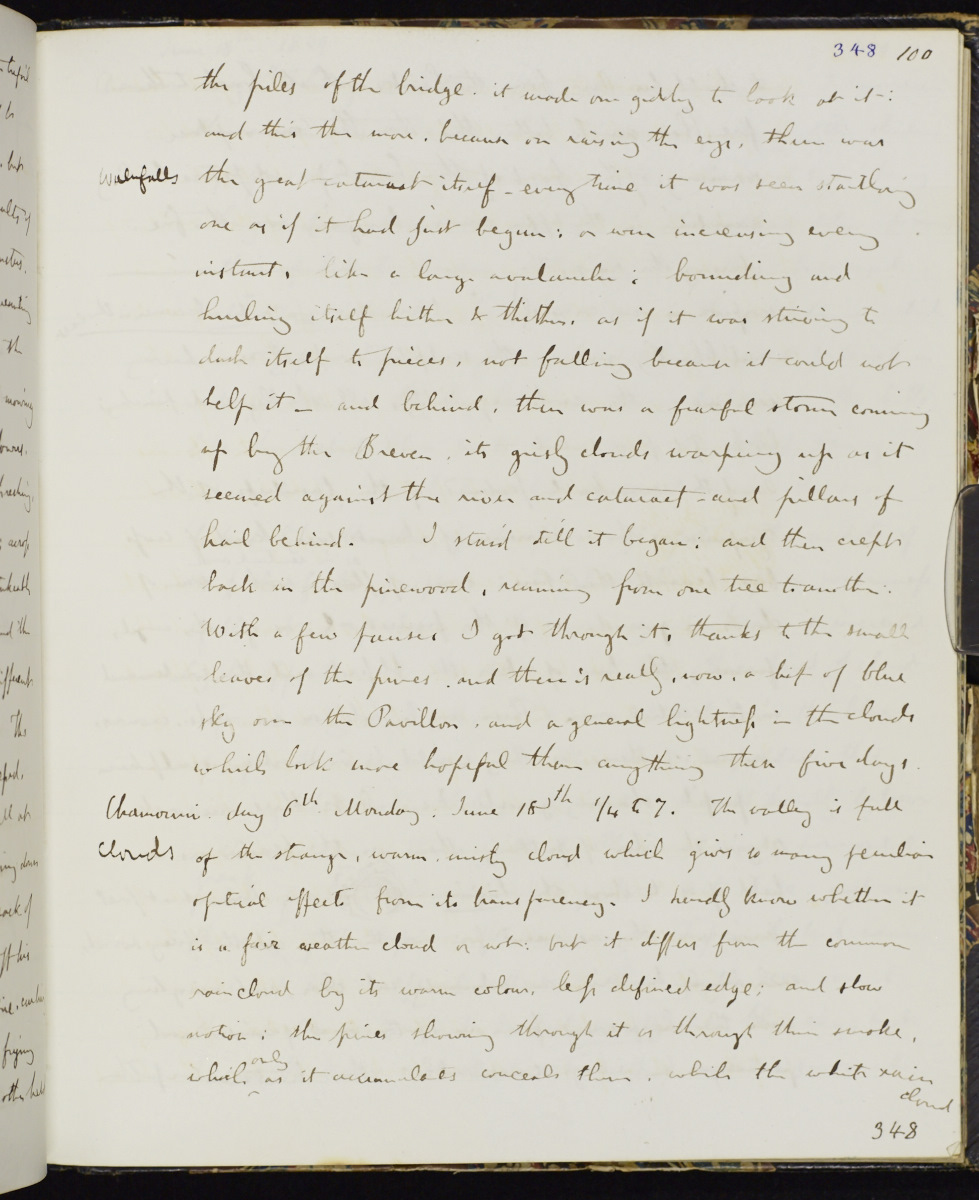 348 100
the piles of the bridge. it made one giddy to look at it:
and this the more, because on raising the eyes, there was
waterfalls the great cataract itself - every time it was seen startling
one as if it had just begun: or were increasing every
instant, like a large avalanche; bounding and
hurling itself hither & thither, as if it was striving to
dash itself to pieces, not falling because it could not
help it - and behind, there was a fearful storm coming
up by the Breven, its grisly clouds warping up as it
seemed against the river and cataract - and pillars of
hail behind. I staid till it began; and then crept
back in the pinewood, running from one tree to another.
With a few pauses I got through it, thanks to the small
leaves of the pines, and there is really, now, a bit of blue
sky over the Pavillon, and a general lightness in the clouds
which look more hopeful than anything these five days.
Chamouni. day 6th. Monday. June 18th 1/4 to 7. The valley is full
clouds of the strange, warm, misty cloud which gives so many peculiar
optical effects from its transparency. I hardly know whether it
is a fair weather cloud or not: but it differs from the common
raincloud by its warm colour, less defined edge; and slow
motion; the pines showing through it as through thin smoke,
which only as it accumulates conceals them, while the white rain
cloud
348